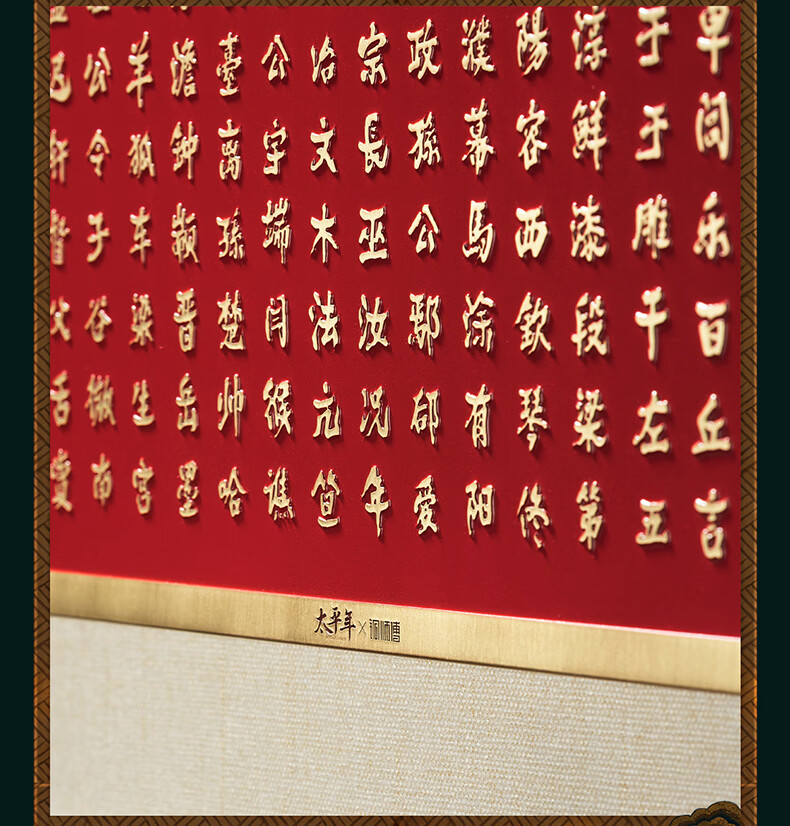 公羊澹臺公冶宗政濮陽淳于单
令狐鈡离宇文長孫慕容鮮于闾
督子车颛孫端木巫馬公西漆雕乐
父谷梁晋楚闫法汝鄢涂钦段干百
舌微生岳帅缑亢况郈有琴梁左丘
南宫墨哈谯笪年爱阳佟第五言
太平年×铜师傅